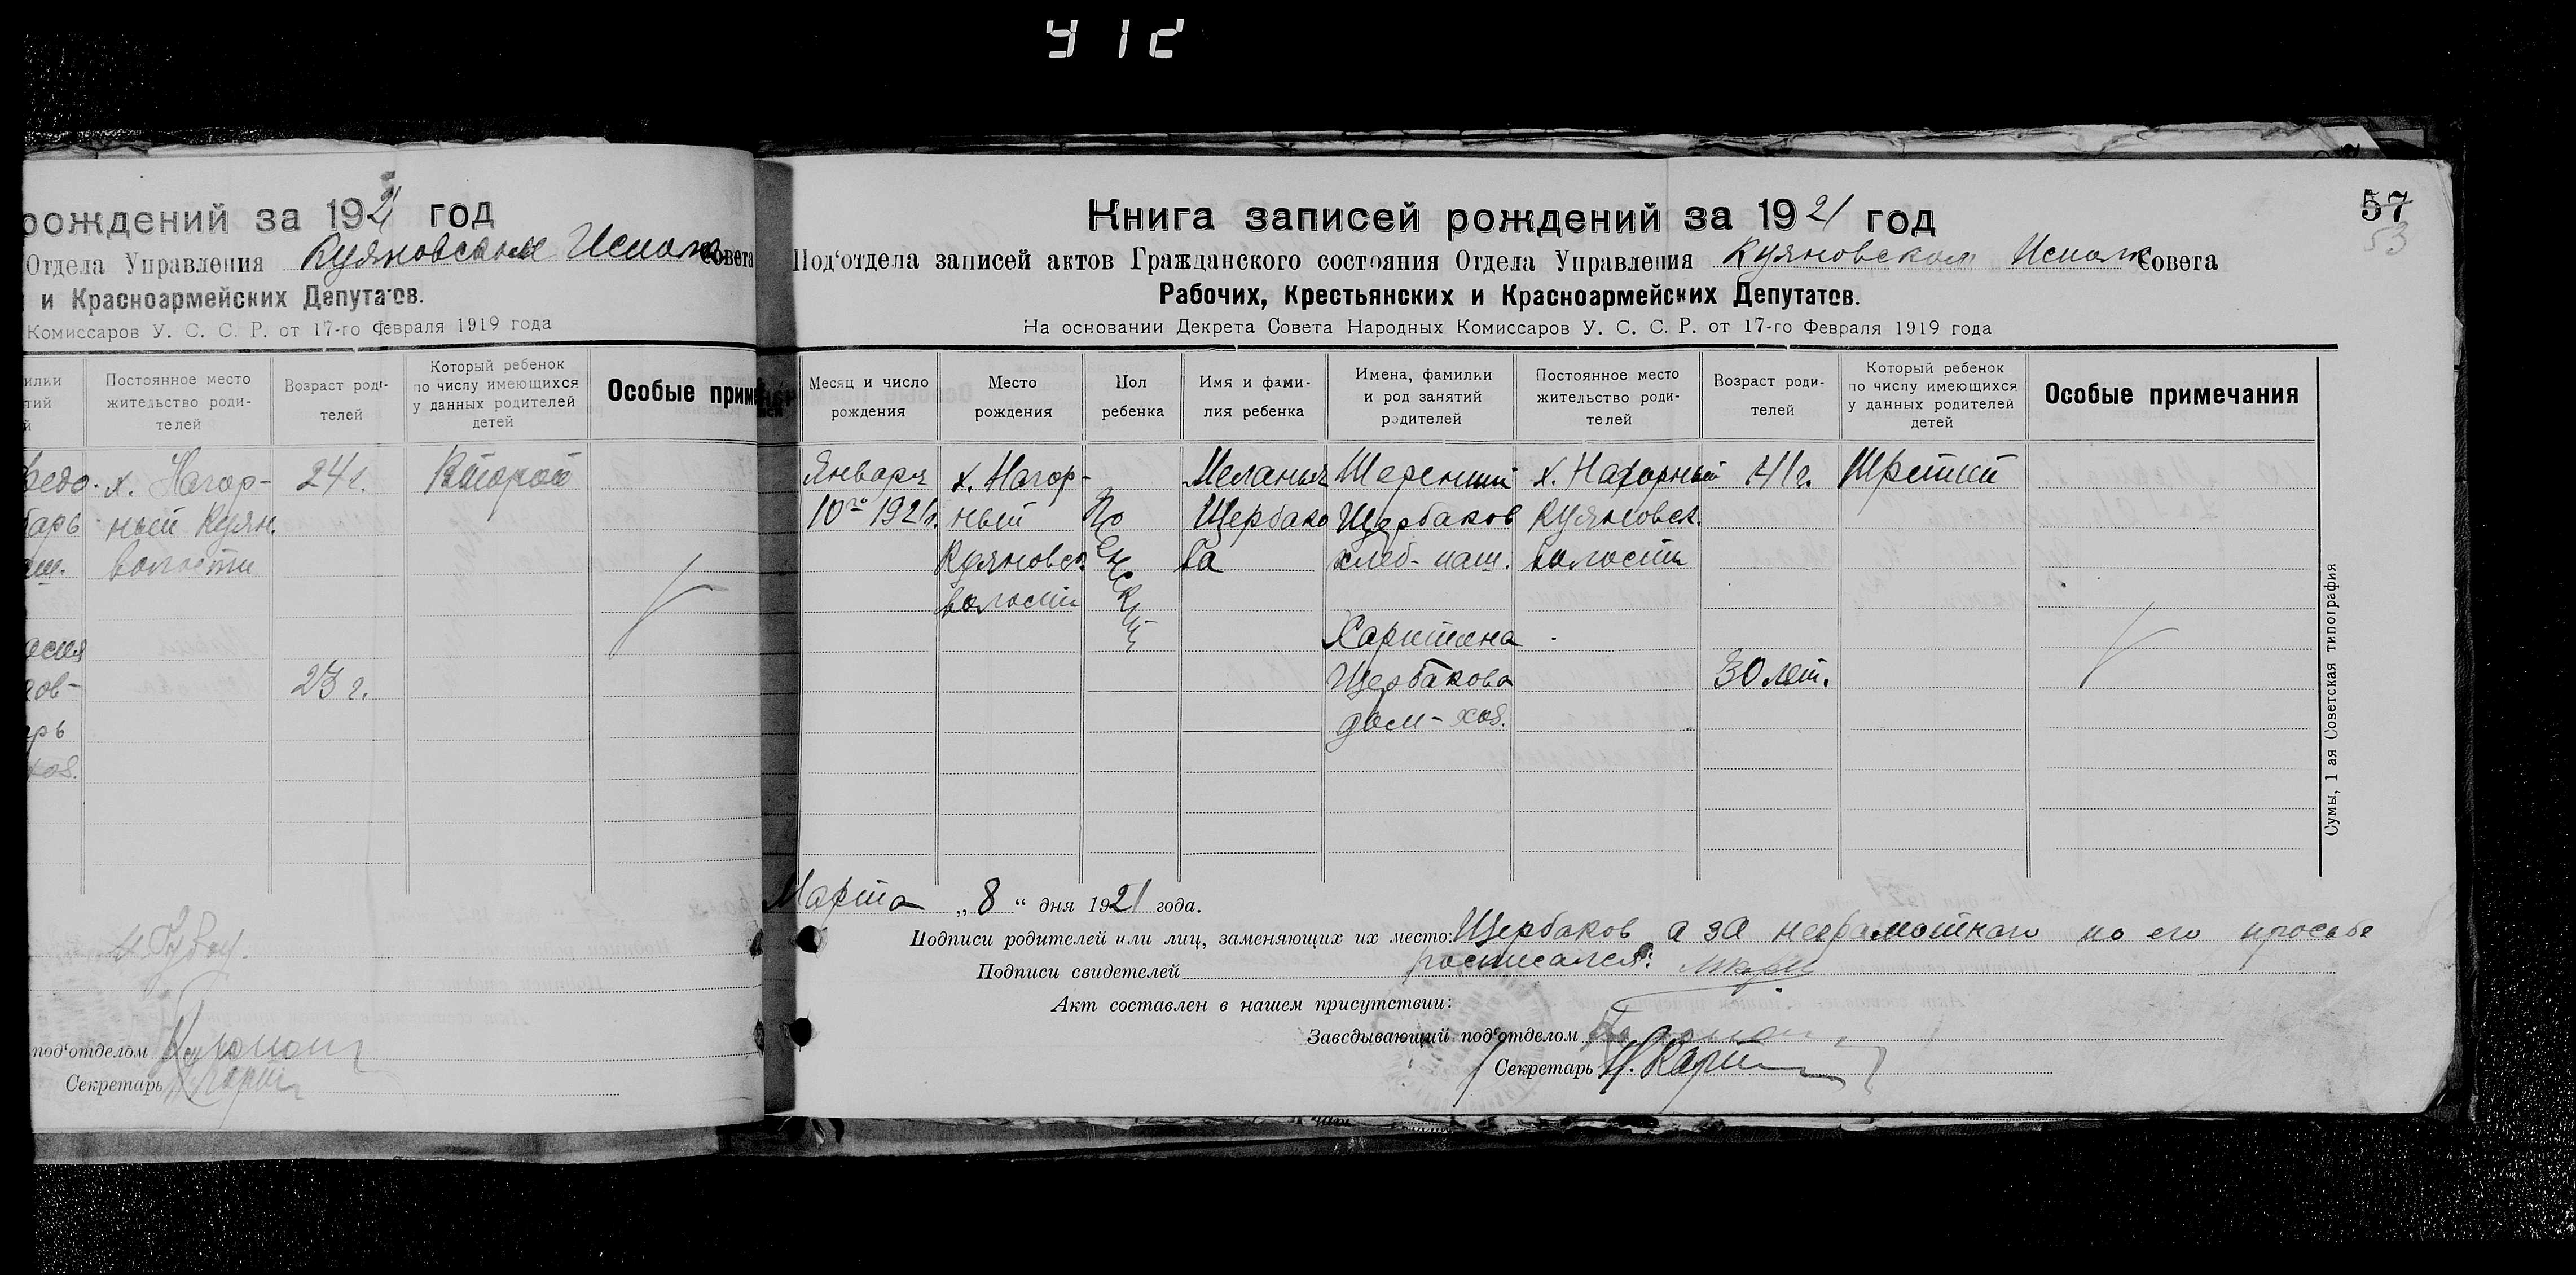 412
рождений за 1921 год
Отдела Управления Куяновском Исполк. Совета
и Красноармейских Депутатов.
Комиссаров У. С. С. Р. от 17-го Февраля 1919 года
Постоянное место жительство родителей
Возраст родителей
Который ребенок по числу имеющихся у данных родителей детей
Особые прим
х. Нагор- 24 г. Второй
ный Куян.
волости
23 г.
под‘отделом
Секретарь
57
53
Книга записей рождений за 1921 год
Под‘отдела записей актов Гражданского состояния Отдела Управления Куяновском Исполк Совета
Рабочих, Крестьянских и Красноармейских Депутатов.
На основании Декрета Совета Народных Комиссаров У. С. С. Р. от 17-го Февраля 1919 года
Месяц и число рождения
Место рождения
Пол ребенка
Имя и фамилия ребенка
Имена, фамилии и род занятий родителей
Постоянное место жительство родителей
Возраст родителей
Который ребенок по числу имеющихся у данных родителей детей
Особые примечания
Января х. Нагор- Мелания Терентий х. Нагорный 41 г. Третий
10го 1921 г. ный Щербако Щербаков Куяновск.
Куяновск. ва хлеб-паш. волости
волости Женский
Харитина
Щербакова 30 лет.
дом-хоз.
Марта „8“ дня 1921 года.
Подписи родителей или лиц, заменяющих их место: Щербаков а за неграмотного по его просьбе
Подписи свидетелей росписался:
Акт составлен в нашем присутствии:
Завсдывающий под‘отделом
Секретарь
Сумы, 1 ая Советская типография